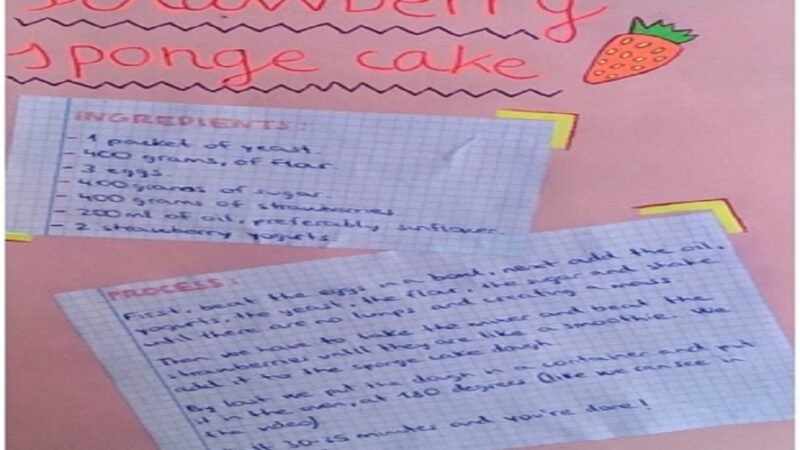 strawberry
sponge cake
INGREDIENTS:
- 1 packet of yeast.
- 400 grams, of flar.
- 3 eggs
- 400 grams of sugar.
- 400 grams of strawberries
- 200 ml of oil, preferably sunflower
- 2 strawberry yogurts
PROCESS:
First, beat the eggs in a bowl, next add the oil,
yogurts, the yeast, the flar, the sugar and shake
until there are no lumps and creating a mass
Then we have to take the mixer and beat the
strawberries until they are like a smoothie. We
add it to the sponge cake dough
By last we put the dough in a container and put
it in the oven, at 180 degrees (like we can see in
the video)
30-35 minutes and you're done!